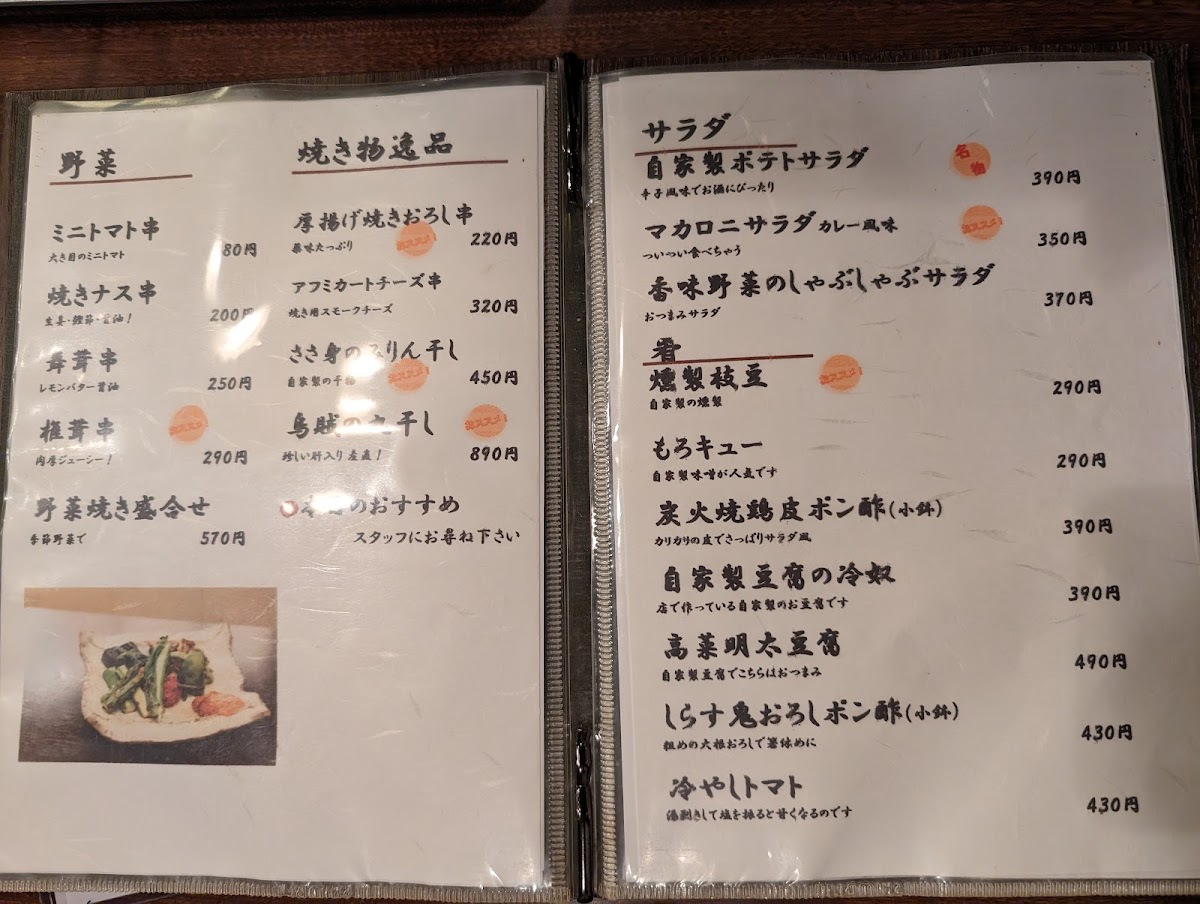 野菜
ミニトマト串
大き目のミニトマト
80円
焼きナス串
生姜・鰹節・醤油！
200円
舞茸串
レモンバター醤油
250円
椎茸串
オススメ！
肉厚ジューシー！
290円
野菜焼き盛合せ
季節野菜で
570円
焼き物逸品
厚揚げ焼きおろし串
薬味たっぷり
オススメ！
220円
アフミカートチーズ串
焼き用スモークチーズ
320円
ささ身のみりん干し
自家製の干物
オススメ！
450円
烏賊の丸干し
オススメ！
珍しい肝入り産直！
890円
本日のおすすめ
スタッフにお尋ね下さい
サラダ
自家製ポテトサラダ
名物
辛子風味でお酒にぴったり
390円
マカロニサラダカレー風味
オススメ！
ついつい食べちゃう
350円
香味野菜のしゃぶしゃぶサラダ
おつまみサラダ
370円
肴
燻製枝豆
オススメ！
自家製の燻製
290円
もろキュー
自家製味噌が人気です
290円
炭火焼鶏皮ポン酢(小鉢)
カリカリの皮でさっぱりサラダ風
390円
自家製豆腐の冷奴
店で作っている自家製のお豆腐です
390円
高菜明太豆腐
自家製豆腐でこちらはおつまみ
490円
しらす鬼おろしポン酢(小鉢)
粗めの大根おろしで箸休めに
430円
冷やしトマト
湯剥きして塩を振ると甘くなるのです
430円